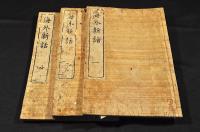 海外新話 一
海外新話
海外新話